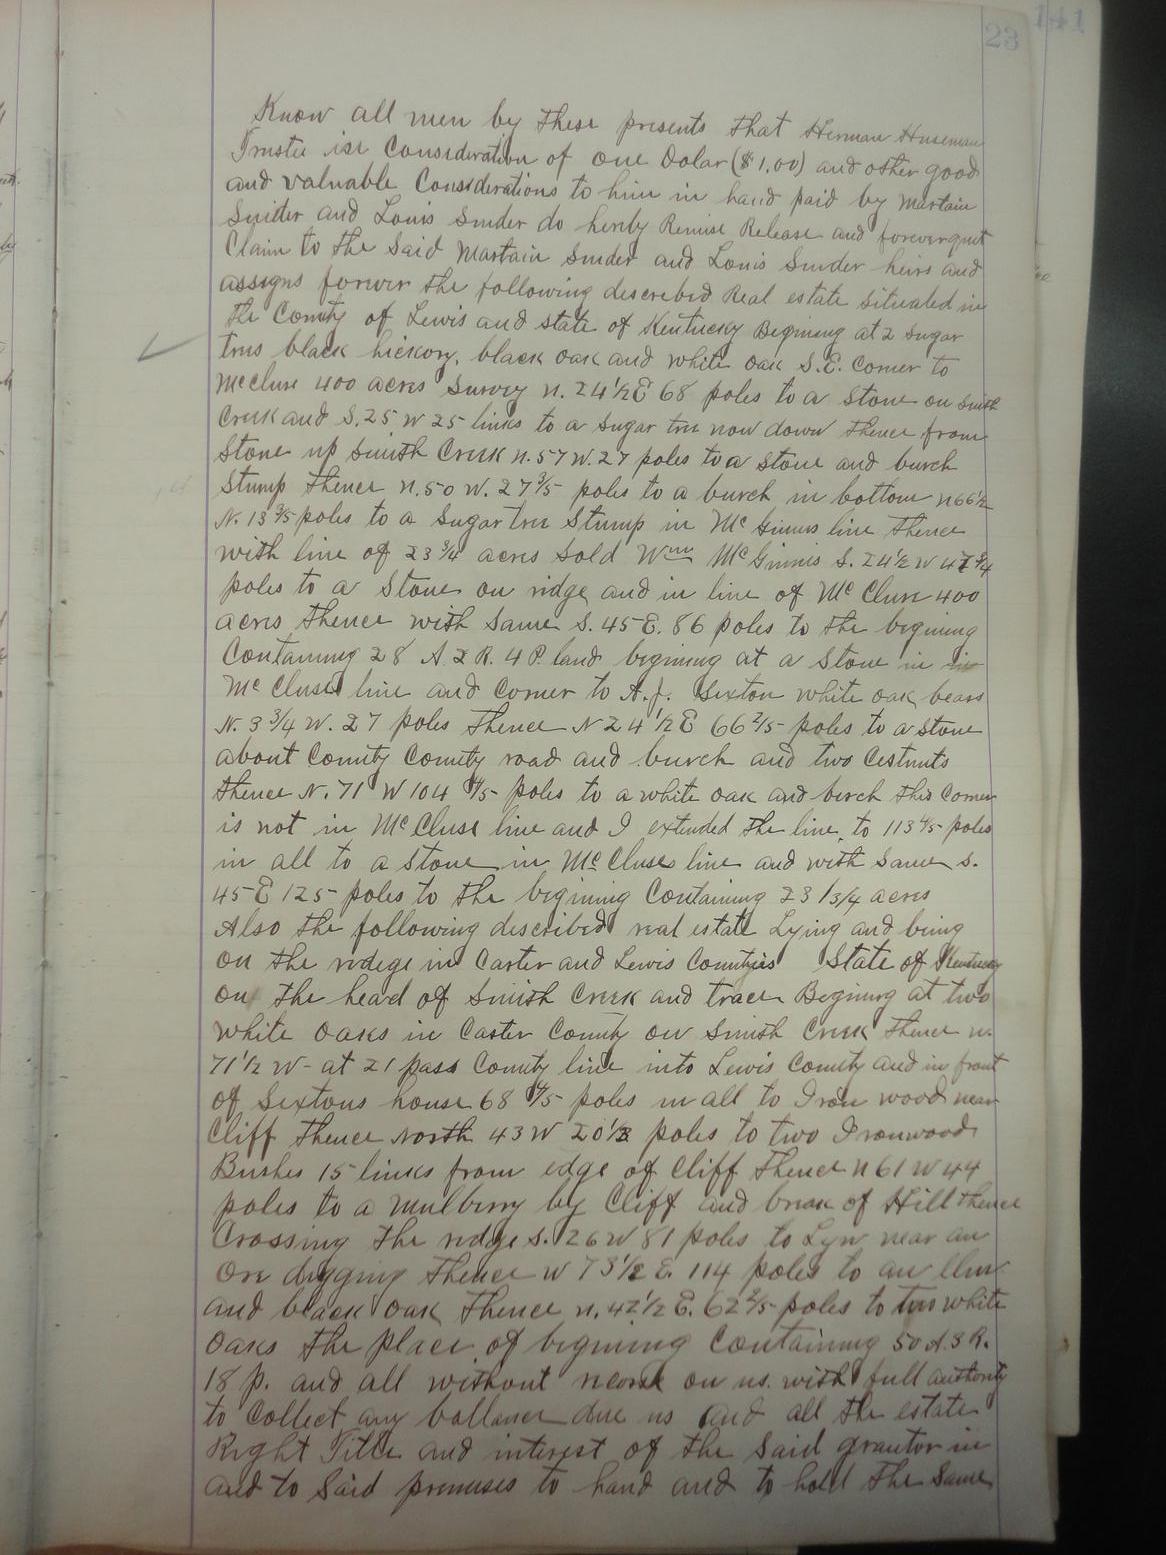 23 141
Know all men by these presents that Herman Huseman
Trustee in Consideration of one Dolar ($1.00) and other good
and valuable Considerations to him in hand paid by Martain
Snider and Louis Snider do hereby Remise Release and forever quit
Claim to the Said Martain Snider and Louis Snider heirs and
assigns forever the following described Real estate situated in
the County of Lewis and state of Kentucky Begining at 2 sugar
trees black hickory, black oak and white oak S.E. Corner to
McClure 400 acres Survey N. 24 1/2 E 68 poles to a Stone on Smith
Creek and S. 25 W 25 links to a Sugar tree now down thence from
Stone up Smith Creek N. 57 W. 27 poles to a Stone and burch
Stump thence N. 50 W. 27 3/5 poles to a burch in bottom N 66 1/2
N. 13 3/5 poles to a Sugar tree Stump in McGinnis line thence
with line of 23 3/4 acres Sold Wm McGinnis S. 24 1/2 W 47 3/4
poles to a Stone on ridge and in line of McClure 400
acres thence with Same S. 45 E. 86 poles to the begining
Containing 28 A 2 R. 4 P. land begining at a Stone in in
McCluse line and Corner to A.J. Sexton white oak bears
N. 3 3/4 W. 27 poles thence N 24 1/2 E 66 2/5 poles to a stone
about County County road and burch and two Cestnuts
thence N. 71 W 104 4/5 poles to a white oak and birch this Corner
is not in McCluse line and I extended the line to 113 4/5 poles
in all to a Stone in McCluses line and with Same S.
45 E 125 poles to the begining Containing 23 1 3/4 acres
Also the following described real estate Lying and being
on the ridege in Carter and Lewis Counties State of Kentucky
on the head of Smith Creek and trace Begining at two
white oaks in Carter County on Smith Creek thence N.
71 1/2 W- at 21 pass County line into Lewis County and in front
of Sextons house 68 4/5 poles in all to Iron wood near
Cliff thence North 43 W 20 1/2 poles to two Ironwood
Bushes 15 links from edge of Cliff thence N 61 W 44
poles to a mulberry by Cliff and break of Hill thence
Crossing the ridge S. 26 W 81 poles to Lyn near an
Ore digging thence W 73 1/2 E. 114 poles to an Elm
and black oak thence N. 42 1/2 E. 62 2/5 poles to two white
oaks the place of begining Containing 50 A. 3 R.
18 p. and all without recorse on us. with full authority
to Collect any ballance due us and all the estate
Right Title and interest of the Said grantor in
and to Said premises to hand and to hold the Same